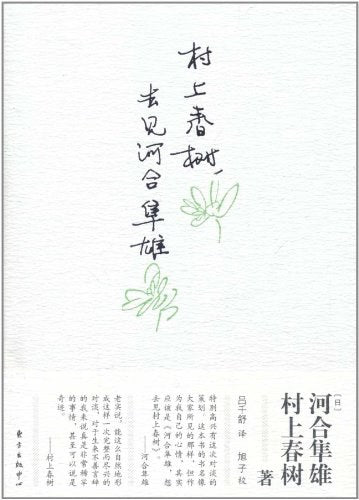 村上春樹,
去见河合隼雄
[日]
河合隼雄
村上春树
著
吕千舒 译 旭子 校
特别高兴有这次对谈的
策划。这本书的书名像
大家所见的那样，但作
为我自己的心情，其实
应该是《河合隼雄，想
去见村上春树》。
——河合隼雄
老实说，能这么自然地形
成这样一次完整而尽兴的
对谈，对于生来不善言辞
的我来说真是非常稀罕
的事情，甚至可以说是
奇迹。
——村上春树
东方出版中心